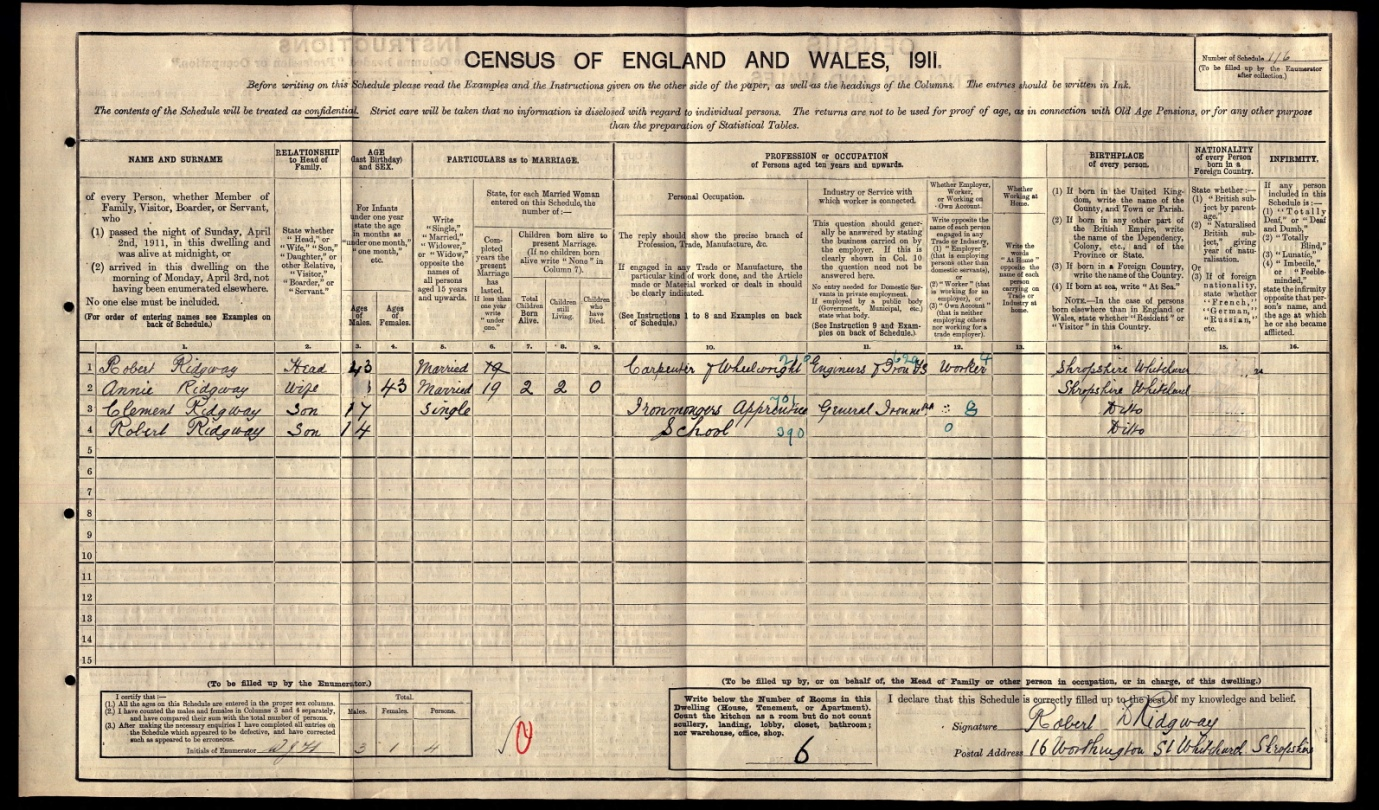 CENSUS OF ENGLAND AND WALES, 1911.
Number of Schedule 116
(To be filled up by the Enumerator after collection.)
Before writing on this Schedule please read the Examples and the Instructions given on the other side of the paper, as well as the headings of the Columns. The entries should be written in Ink.
The contents of the Schedule will be treated as confidential. Strict care will be taken that no information is disclosed with regard to individual persons. The returns are not to be used for proof of age, as in connection with Old Age Pensions, or for any other purpose
than the preparation of Statistical Tables.
NAME AND SURNAME
of every Person, whether Member of
Family, Visitor, Boarder, or Servant,
who
(1) passed the night of Sunday, April
2nd, 1911, in this dwelling and
was alive at midnight, or
(2) arrived in this dwelling on the
morning of Monday, April 3rd, not
having been enumerated elsewhere.
No one else must be included.
(For order of entering names see Examples on
back of Schedule.)
RELATIONSHIP
to Head of
Family.
State whether
"Head," or
"Wife," "Son,"
"Daughter," or
other Relative,
"Visitor,"
"Boarder," or
"Servant."
AGE
(last Birthday)
and SEX.
For Infants
under one year
state the age
in months as
"under one month,"
"one month,"
etc.
Ages
of
Males.
Ages
of
Females.
PARTICULARS as to MARRIAGE.
Write
"Single,"
"Married,"
"Widower,"
or "Widow,"
opposite the
names of all
persons
aged 15 years
and upwards.
State, for each Married Woman
entered on this Schedule, the
number of:—
Completed
years the
present
Marriage
has
lasted.
If less than
one year
write
"under
one."
Children born alive to
present Marriage.
(If no children born
alive write "None" in
Column 7).
Total
Children
Born
Alive.
Children
still
Living.
Children
who
have
Died.
PROFESSION or OCCUPATION
of Persons aged ten years and upwards.
Personal Occupation.
The reply should show the precise branch of
Profession, Trade, Manufacture, &c.
If engaged in any Trade or Manufacture, the
particular kind of work done, and the Article
made or Material worked or dealt in should
be clearly indicated.
(See Instructions 1 to 8 and Examples on back
of Schedule.)
Industry or Service with
which worker is connected.
This question should generally
be answered by stating
the business carried on by
the employer. If this is
clearly shown in Col. 10
the question need not be
answered here.
No entry needed for Domestic Servants
in private employment.
If employed by a public body
(Government, Municipal, etc.)
state what body.
(See Instruction 9 and Examples
on back of Schedule.)
Whether Employer,
Worker,
or Working on
Own Account.
Write opposite the
name of each person
engaged in any
Trade or Industry,
(1) "Employer"
(that is employing
persons other than
domestic servants),
or
(2) "Worker" (that
is working for an
employer), or
(3) "Own Account"
(that is neither
employing others
nor working for a
trade employer).
Whether
Working at
Home.
Write the
words
"At Home"
opposite the
name of each
person
carrying on
Trade or
Industry at
home.
BIRTHPLACE
of every person.
(1) If born in the United Kingdom,
write the name of the
County, and Town or Parish.
(2) If born in any other part of
the British Empire, write
the name of the Dependency,
Colony, etc., and of the
Province or State.
(3) If born in a Foreign Country,
write the name of the Country.
(4) If born at sea, write "At Sea."
NOTE.—In the case of persons
born elsewhere than in England or
Wales, state whether "Resident" or
"Visitor" in this Country.
NATIONALITY
of every Person
born in a
Foreign Country.
State whether:—
(1) "British subject
by parentage."
(2) "Naturalised
British subject,"
giving
year of naturalisation.
Or
(3) If of foreign
nationality,
state whether
"French,"
"German,"
"Russian,"
etc.
INFIRMITY.
If any person
included in this
Schedule is:—
(1) "Totally
Deaf" or "Deaf
and Dumb,"
(2) "Totally
Blind,"
(3) "Lunatic,"
(4) "Imbecile,"
or "Feeble-minded,"
state the infirmity
opposite that person's
name, and
the age at which
he or she became
afflicted.
1. 2. 3. 4. 5. 6. 7. 8. 9. 10. 11. 12. 13. 14. 15. 16.
1 Robert Ridgway Head 43 Married 19 Carpenter & Wheelwright Engineers & Worker Shropshire Whitchurch
2 Annie Ridgway Wife 43 Married 19 2 2 0 Shropshire Whitchurch
3 Clement Ridgway Son 17 Single Ironmongers Apprentice General Ditto
4 Robert Ridgway Son 14 School 390 0 Ditto
5
6
7
8
9
10
11
12
13
14
15
(To be filled up by the Enumerator.)
I certify that:—
(1.) All the ages on this Schedule are entered in the proper sex columns.
(2.) I have counted the males and females in Columns 3 and 4 separately,
and have compared their sum with the total number of persons.
(3.) After making the necessary enquiries I have completed all entries on
the Schedule which appeared to be defective, and have corrected
such as appeared to be erroneous.
Initials of Enumerator
Total.
Males. Females. Persons.
3 1 4
(To be filled up by, or on behalf of, the Head of Family or other person in occupation, or in charge, of this dwelling.)
Write below the Number of Rooms in this
Dwelling (House, Tenement, or Apartment).
Count the kitchen as a room but do not count
scullery, landing, lobby, closet, bathroom;
nor warehouse, office, shop.
6
I declare that this Schedule is correctly filled up to the best of my knowledge and belief.
Signature Robert Ridgway
Postal Address 16 Worthington St Whitchurch Shropshire